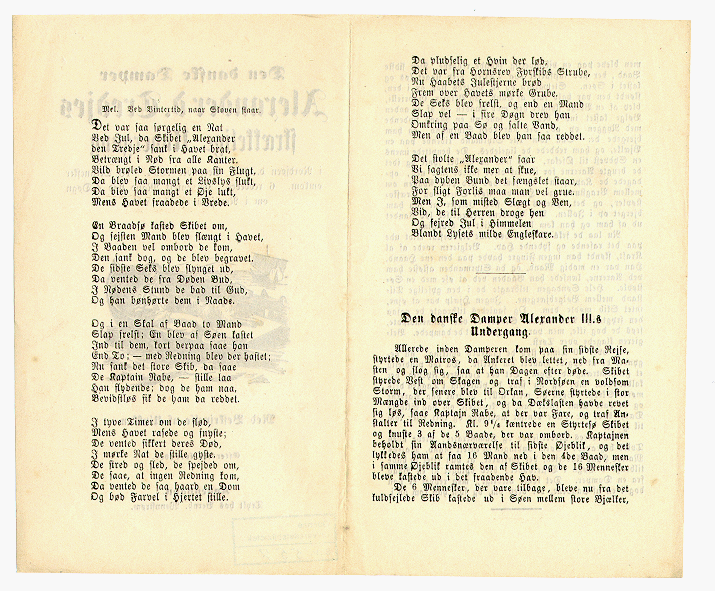 Mel. Ved Vintertid, naar Skoven staar.
Det var saa sørgelig en Nat
Ved Jul, da Skibet „Alexander
den Tredje“ sank i Havet brat,
Betrængt i Nød fra alle Kanter.
Vild brøled Stormen paa sin Flugt,
Da blev saa mangt et Livslys slukt,
Da blev saa mangt et Øje lukt,
Mens Havet fraadede i Vrede.
En Braadsø kasted Skibet om,
Og sejsten Mand blev slængt i Havet,
I Baaden vel ombord de kom,
Den sank dog, og de blev begravet.
De sidste Seks blev slynget ud,
Da vented de fra Døden Bud,
I Nødens Stund de bad til Gud,
Og han bønhørte dem i Naade.
Og i en Skal af Baad to Mand
Slap frelst; En blev af Søen kastet
Ind til dem, kort derpaa saae han
End To; — med Redning blev der hastet;
Nu sank det store Skib, da saae
De Kaptain Rabe, — stille laa
Han flydende; dog de ham naa,
Bevidstløs fik de ham da reddet.
I tyve Timer om de flød,
Mens Havet rasede og snyste;
De vented sikkert deres Død,
I mørke Nat de stille gyste.
De stred og sled, de spejded om,
De saae, at ingen Redning kom,
Da vented de saa haard en Dom
Og bød Farvel i Hjertet stille.
Da pludselig et Hvin der lød,
Det var fra Hornsrev Fyrskibs Strube,
Nu Haabets Julestjerne brød
Frem over Havets mørke Grube.
De Seks blev frelst, og end en Mand
Slap vel — i fire Døgn drev han
Omkring paa Sø og salte Vand,
Men af en Baad blev han saa reddet.
Det stolte „Alexander“ saar
Vi sagtens ikke mer at skue,
Paa dyben Bund det fængslet staar,
For sligt Forlis maa man vel grue.
Men I, som misted Slægt og Ven,
Vid, de til Herren droge hen
Og fejred Jul i Himmelen
Blandt Lysets milde Engleskare.
Den danske Damper Alexander III.s
Undergang.
Allerede inden Damperen kom paa sin sidste Rejse,
styrtede en Matros, da Ankeret blev lettet, ned fra Ma-
sten og slog sig, saa at han Dagen efter døde. Skibet
styrede Vest om Skagen og traf i Nordsøen en voldsom
Storm, der senere blev til Orkan, Søerne styrtede i stor
Mængde ind over Skibet, og da Dækslasten havde revet
sig løs, saae Kaptajn Rabe, at der var Fare, og traf An-
stalter til Redning. Kl. 9¼ kæntrede en Styrtesø Skibet
og knuste 3 af de 5 Baade, der var ombord. Kaptajnen
beholdt sin Aandsnærværelse til sidste Øjeblik, og det
lykkedes ham at faa 16 Mand ned i den 4de Baad, men
i samme Øjeblik ramtes den af Skibet og de 16 Mennesker
bleve kastede ud i det fraadende Hav.
De 6 Mennesker, der vare tilbage, bleve nu fra det
kuldsejlede Skib kastede ud i Søen mellem store Bjælker,